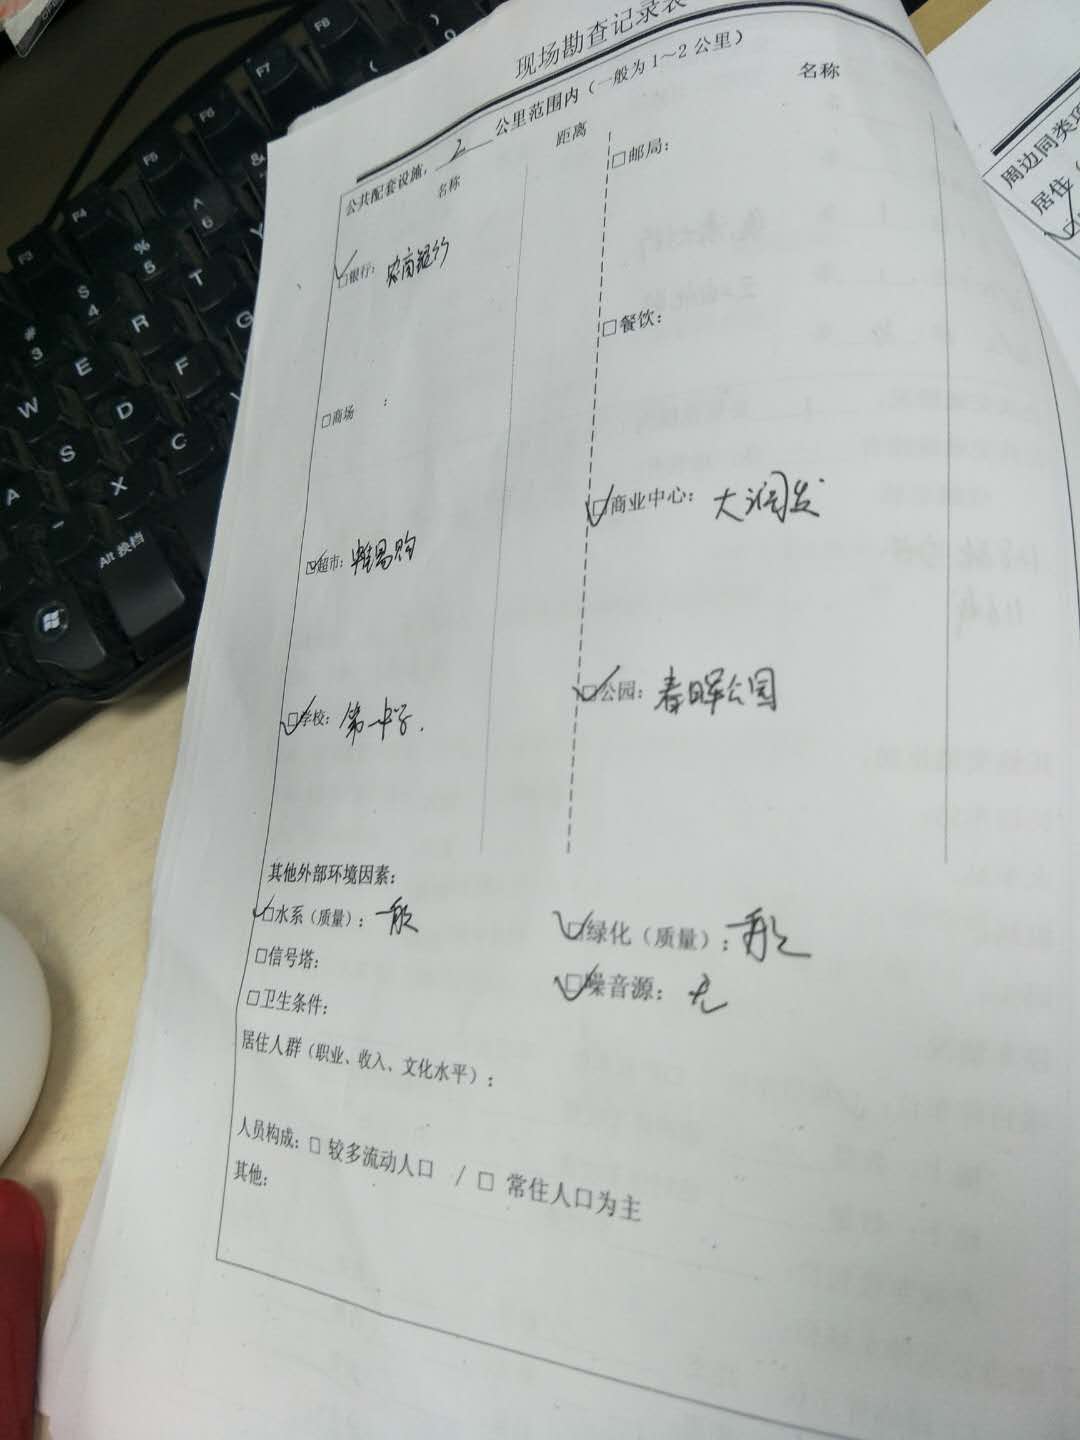 现场勘查记录表
公共配套设施, 2 公里范围内（一般为1～2公里）
名称 距离 名称
☑银行: 农商银行
□邮局:
□商场 :
□餐饮:
☑超市:
☑商业中心: 大润发
☑学校: 第一中学.
☑公园: 春晖公园
其他外部环境因素:
☑水系（质量）: 一般
☑绿化（质量）: 一般
□信号塔:
☑噪音源: 无
□卫生条件:
居住人群（职业、收入、文化水平）:
人员构成: □ 较多流动人口 / □ 常住人口为主
其他:
周边同类项
居住（
F8
F7
F6
F5
F4
F3
&
^
6
%
5
$
4
#
3
Y
T
R
E
W
G
F
D
S
A
C
X
Alt 换档